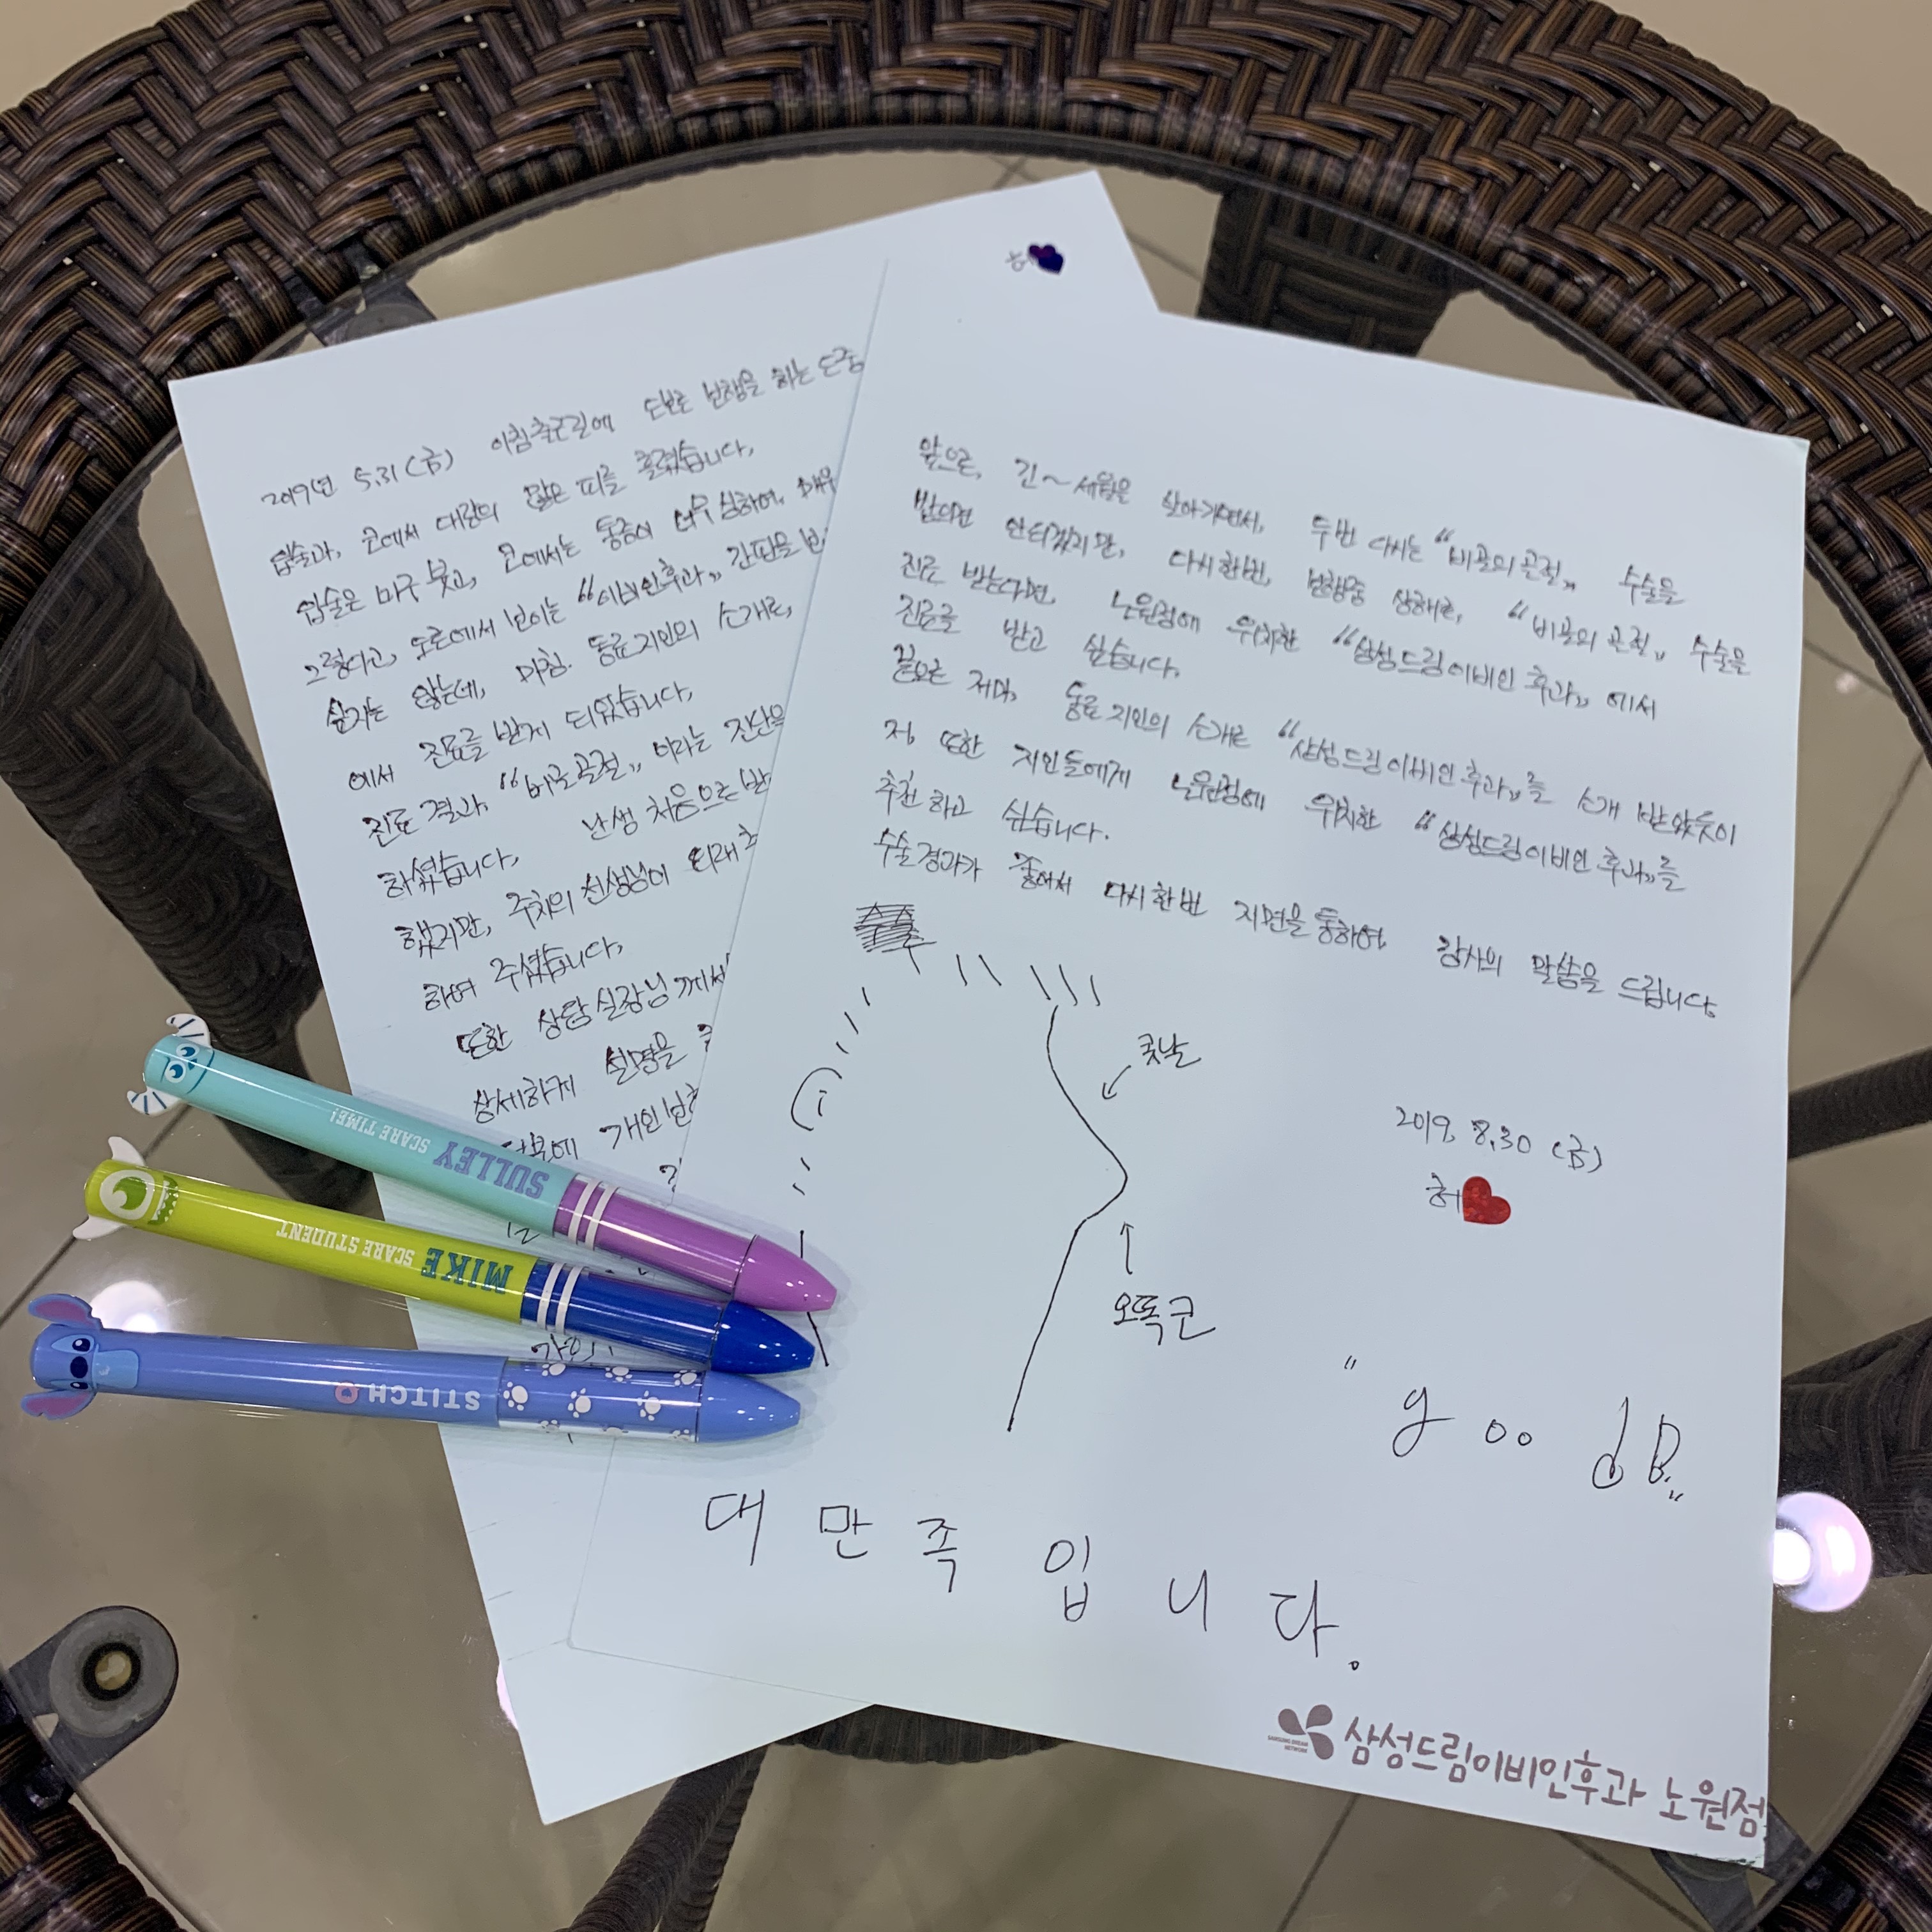 허
2019년 5.31(금) 아침출근길에 도보로 보행을 하는 도중
입술과, 코에서 대량의 많은 피를 흘렸습니다,
입술은 마구 붓고, 코에서는 통증이 너무 심하여, 매우
그렇다고, 도로에서 보이는 “이비인후과„ 간판을 보
싶지는 않는데, 마침. 동료지인의 소개로,
에서 진료를 받게 되었습니다,
진료결과, “비골골절„ 이라는 진단을
하셨습니다, 난생 처음으로 받
했지만, 주치의 선생님이
하여 주셨습니다,
또한 상담실장님께서
상세하게 설명을
개인보험
앞으로, 긴~세월을 살아가면서, 두번 다시는 “비골의골절„ 수술을
받으면 안되겠지만, 다시한번, 보행중 상해로, “비골의 골절„ 수술을
진료 받는다면, 노원점에 위치한 “삼성드림이비인후과„ 에서
진료를 받고 싶습니다.
끝으로 저마, 동료지인의 소개로 “삼성드림이비인후과„를 소개 받았듯이
저 또한 지인들에게 노원점에 위치한 “삼성드림이비인후과„를
추천하고 싶습니다.
수술경과가 좋아서 다시한번 지면을 통하여, 감사의 말씀을 드립니다.
콧날
2019. 8.30 (금)
허
오똑코
"good"
대만족입니다.
SULLEY SCARE TIME!
MIKE SCARE STUDENT
STITCH
SAMSUNG DREAM NETWORK
삼성드림이비인후과 노원점